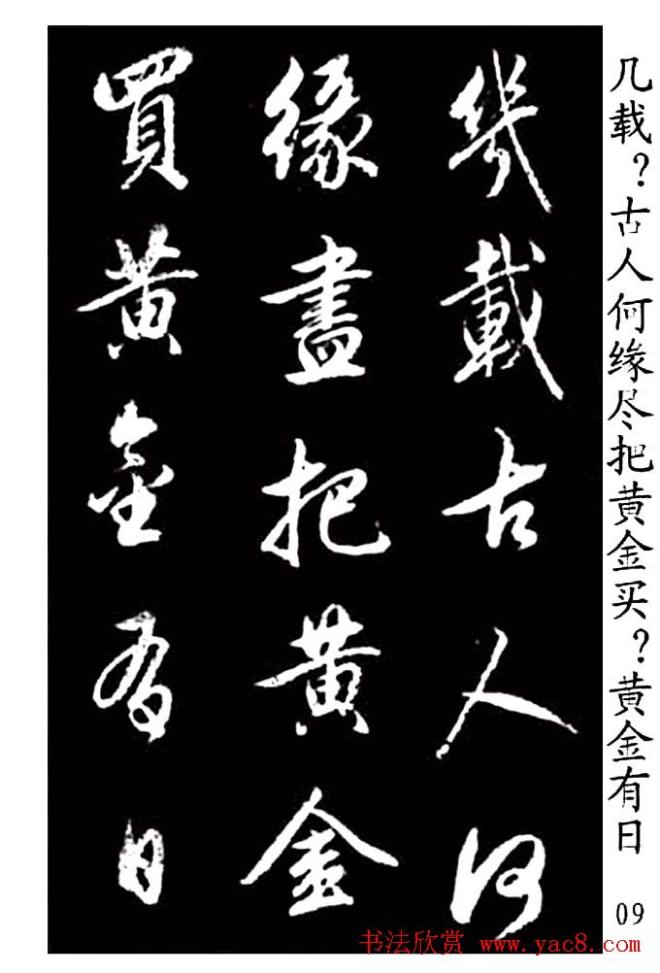 幾載古人何
緣盡把黃金
買黃金有日
几载？古人何缘尽把黄金买？黄金有日
09
书法欣赏 www.yac8.com